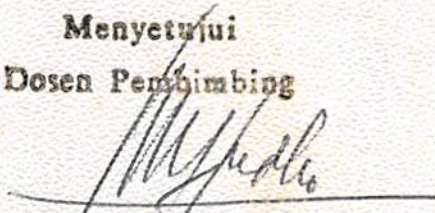 Menyetujui
Dosen Pembimbing